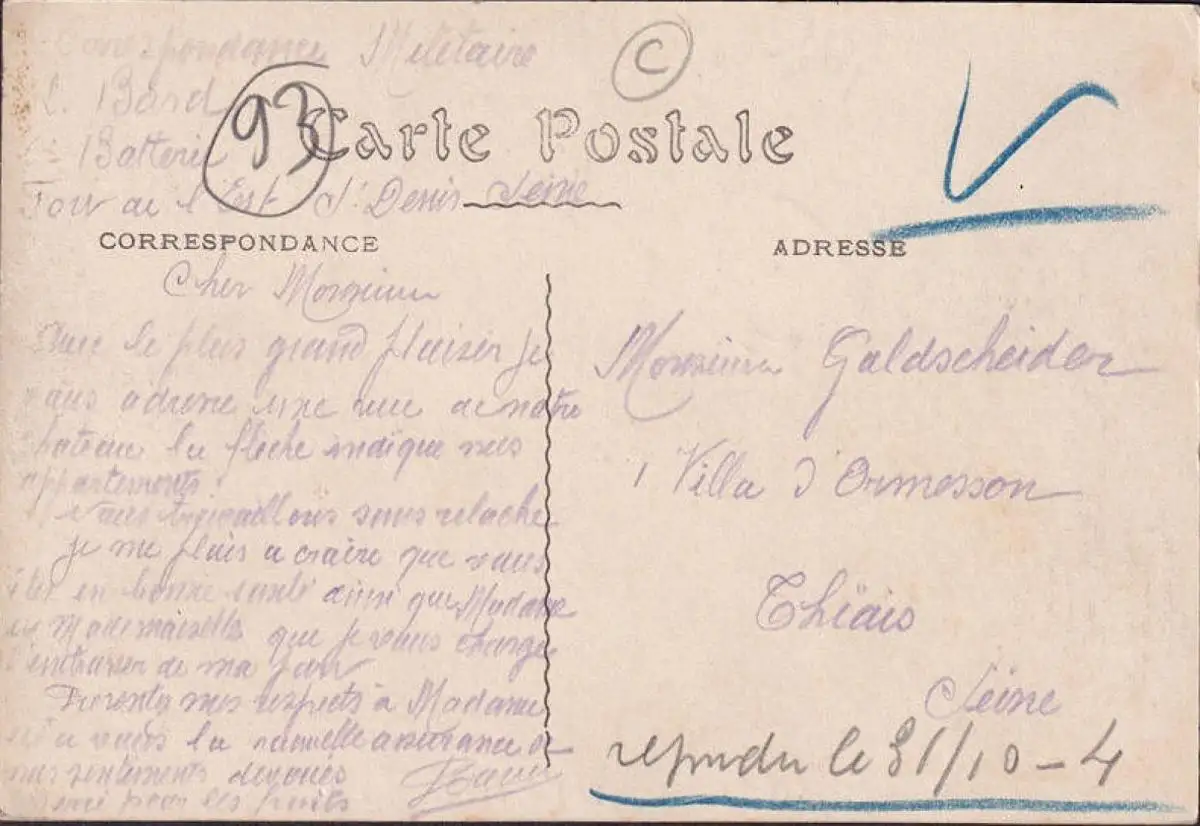 Correspondance Militaire
C
Bard
93
Carte Postale
Batterie
Fort de l'Est St Denis Seine
CORRESPONDANCE
ADRESSE
Cher Monsieur
Avec le plus grand plaisir je
vous adresse une vue de notre
chateau la fleche indique nos
appartements.
Nous travaillons sans relache
je me plais a croire que vous
êtes en bonne santé ainsi que Madame
et Mademoiselle que je vous charge
d'embrasser de ma part
Presentez mes respects à Madame
et a vous la nouvelle assurance de
mes sentiments devoués
Merci pour les fruits
Monsieur Galdscheider
1 Villa d'Ormesson
Thiais
Seine
repondu le 31/10 - 4